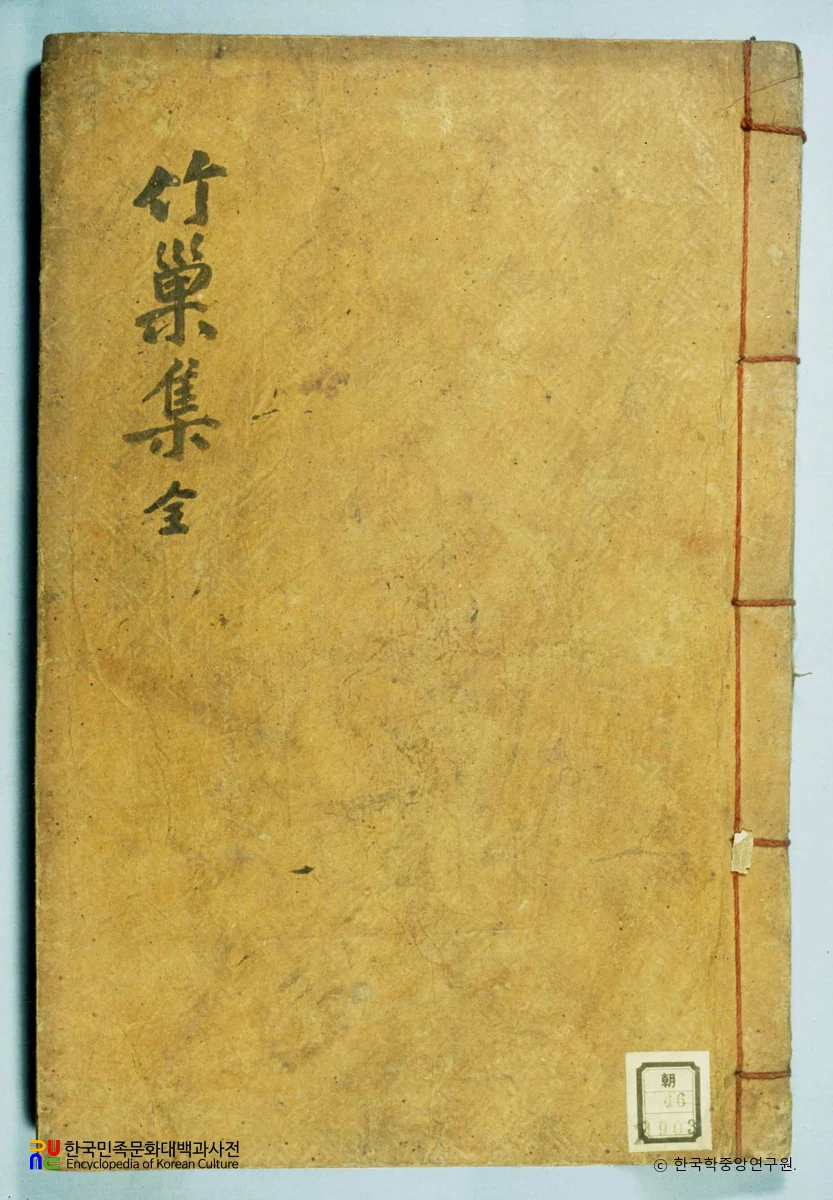 竹巢集全
朝
46
한국민족문화대백과사전
Encyclopedia of Korean Culture
ⓒ 한국학중앙연구원.